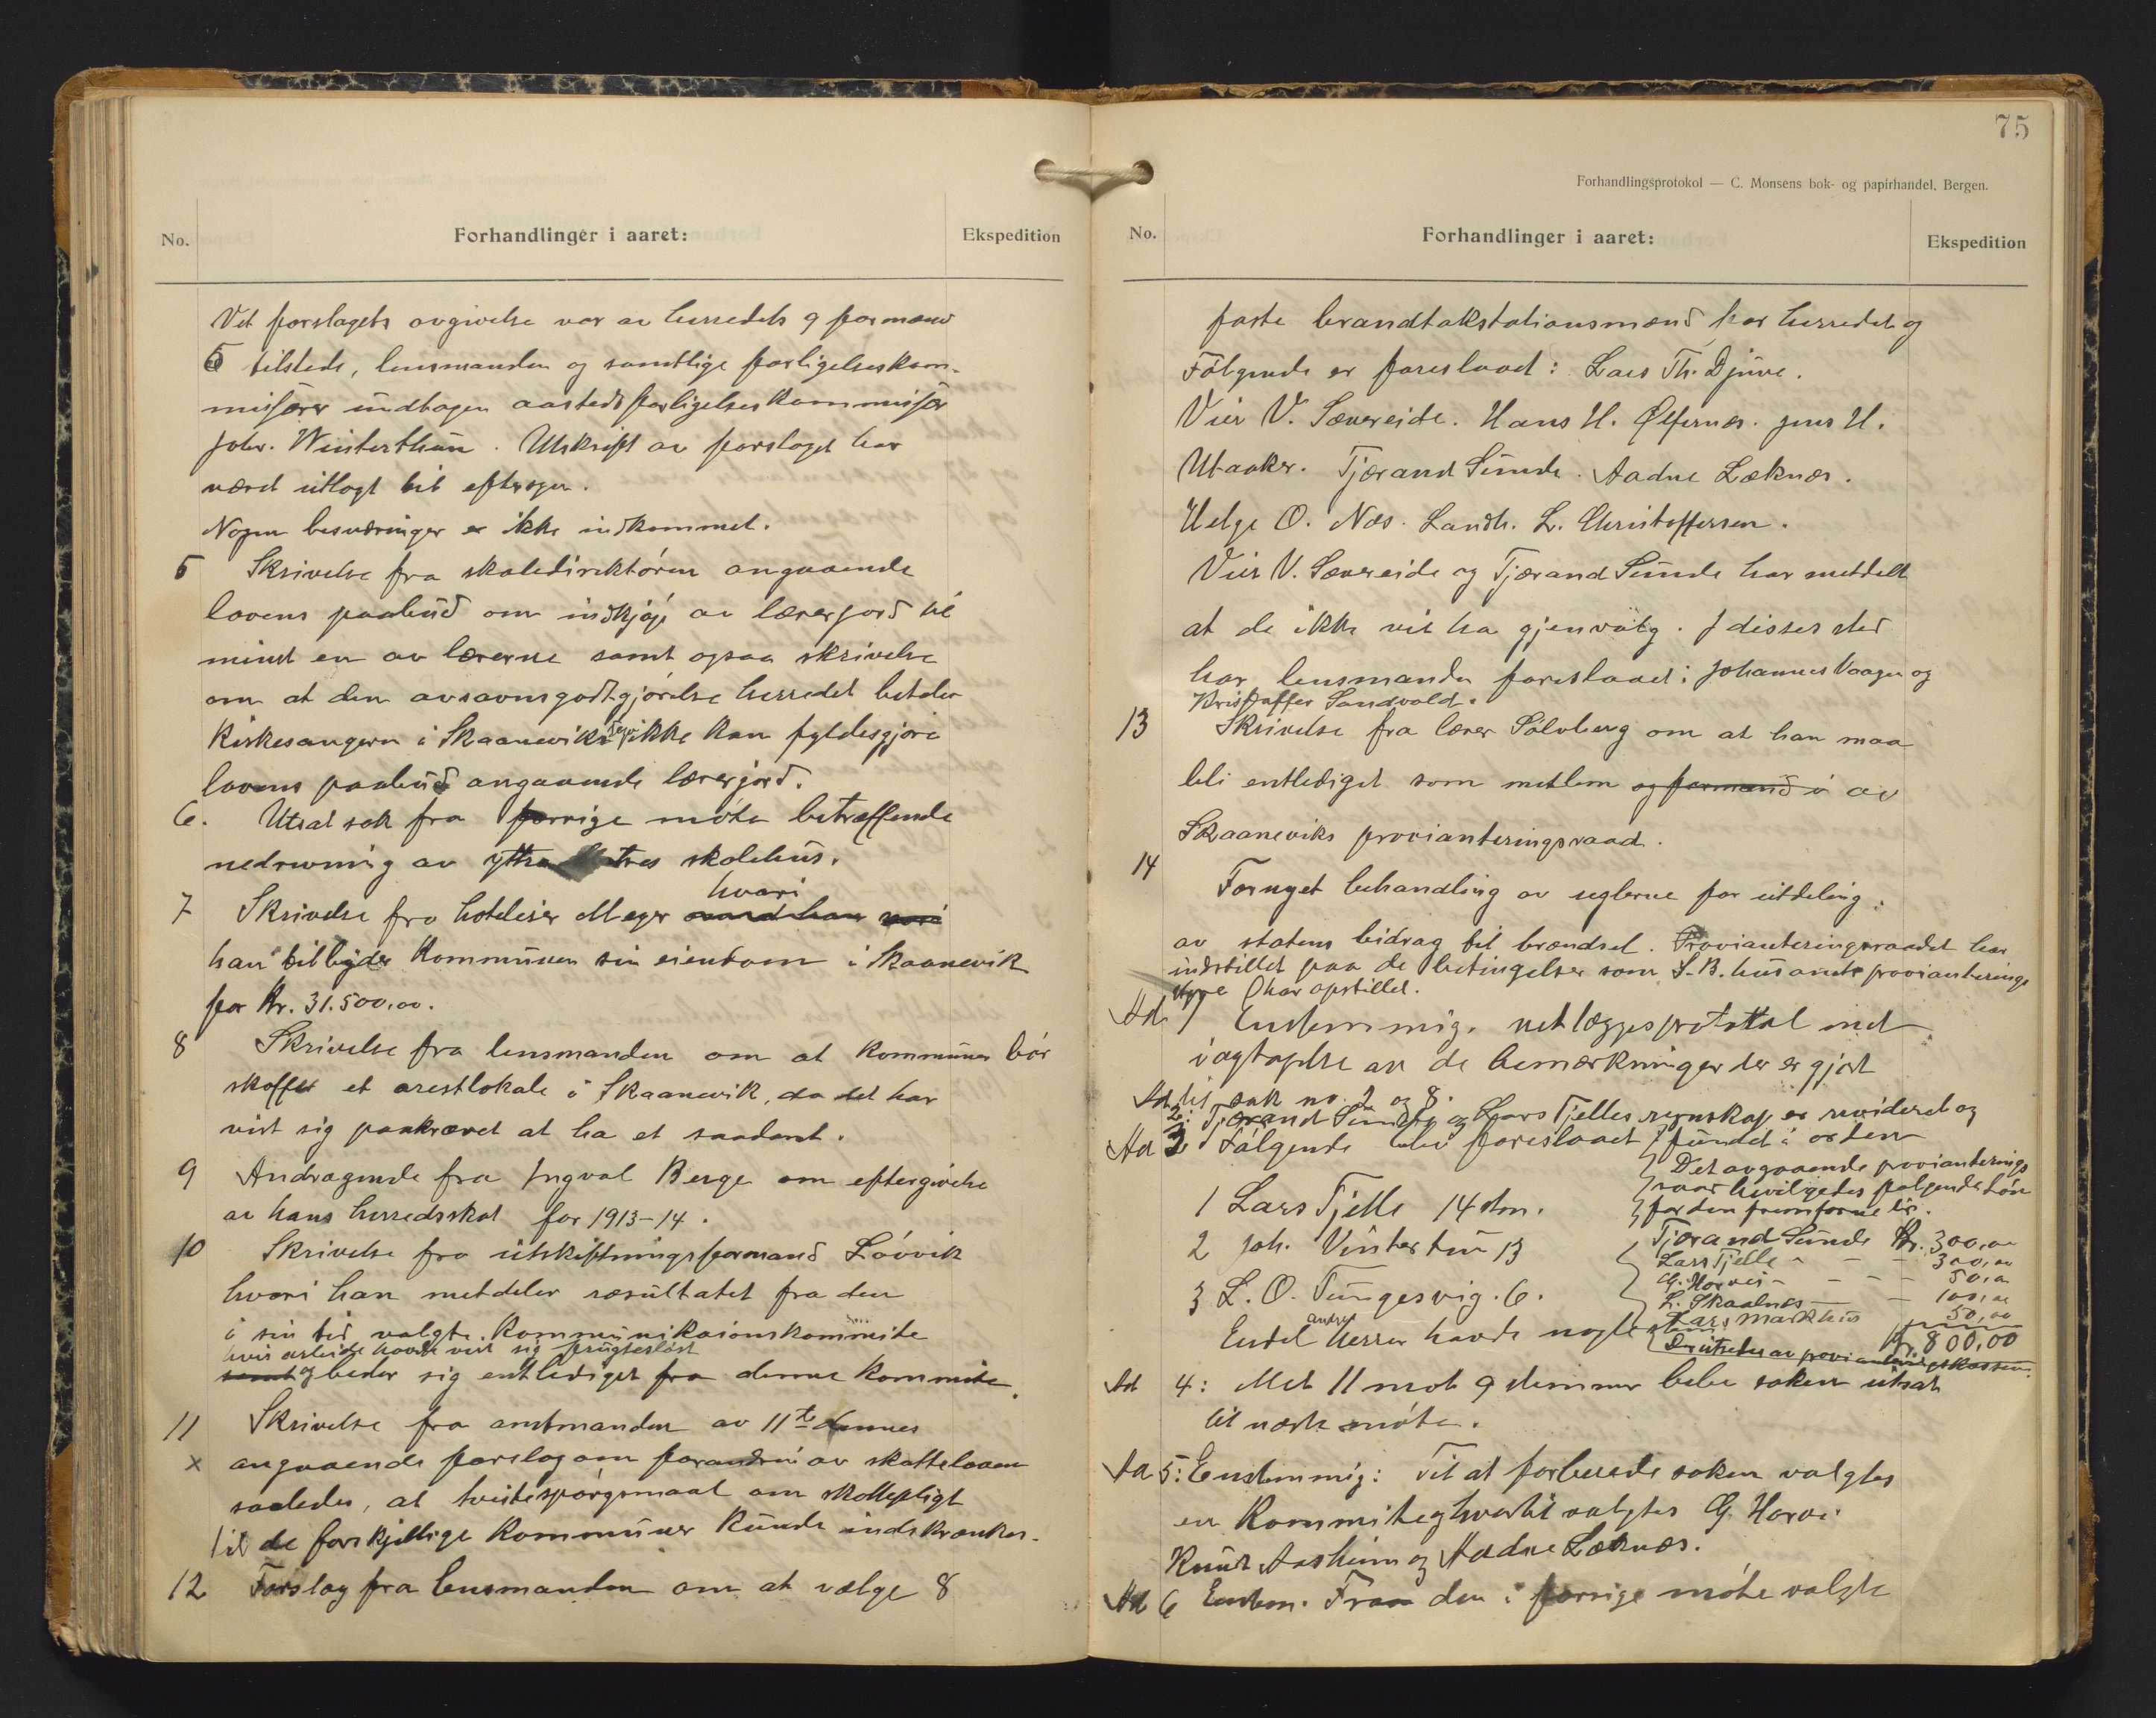 No.
Forhandlinger i aaret:
Ekspedition
Vet forslagets avgivelse var av herredets 9 formænd
5 tilstede, lensmanden og samtlige forligelseskom-
missærer undtagen aastedsforligelseskommissær
Johs. Winterthun. Utskrift av forslaget har
været utlagt til eftersyn.
Nogen besværinger er ikke indkommet.
5 Skrivelse fra skoledirektören angaaende
lovens paabud om indkjøp av lærerjord til
mindst en av lærerne samt ogsaa skrivelse
om at den avsavnsgodtgjörelse herredet betaler
Kirkesangeren i Skaanevik ikke kan fyldesgjöre
lovens paabud angaaende lærerjord.
6. Utsat sak fra forrige möte betræffende
nedrivning av yttre skolehus.
7 Skrivelse fra hoteleier Meyer hvori
han tilbyder Kommunen sin eiendom i Skaanevik
for Kr. 31.500,00.
8 Skrivelse fra lensmanden om at kommunen bör
skaffe et arestlokale i Skaanevik, da det har
vist sig paakrævet at ha et saadant.
9 Andragende fra Ingval Berge om eftergivelse
av hans herredsskat for 1913-14.
10 Skrivelse fra utskiftningsformand Lövvik
hvori han meddeler resultatet fra den
i sin tid valgte Kommunikaionskommite
hvis arbeide havde vist sig frugtesløst
samt og beder sig entlediget fra denne Kommite.
11 Skrivelse fra amtmanden av 11te dennes
x angaaende forslag om forandrin av skatteloven
saaledes, at tvistespörgsmaal om skattepligt
til de forskjellige Kommuner kunde indskrænkes.
12 Forslag fra lensmanden om at vælge 8
75
Forhandlingsprotokol — C. Monsens bok- og papirhandel, Bergen.
No.
Forhandlinger i aaret:
Ekspedition
faste brandtakstationsmænd for herredet og
Fölgende er foreslaaet: Lars Th. Djuve.
Vier V. Sævereide. Hans H. Ølfernes. Jens H.
Utaaker. Tjærand Sunde. Aadne Læknes.
Helge O. Næs. Landh. L. Christoffersen.
Vier V. Sævereide og Tjærand Sunde har meddelt
at de ikke vil ha gjenvalg. I disses sted
har lensmanden foreslaaet: Johannes Vaage og
Kristoffer Sandvold.
13 Skrivelse fra lærer Sölvberg om at han maa
bli entlediget som medlem og formand i av
Skaaneviks provianteringsraad.
14 Fornyet behandling av reglerne for utdeling
av statens bidrag til brændsel. Provianteringsraadet har
indstillet paa de betingelser som S.B. husamts provianterings
styre har opstillet.
Ad 1 Enstemmig. vetlægges protokol med
iagtagelse av de bemærkninger der er gjort
til sak no. 2 og 8.
Ad 2: Tjærand Sunde og Lars Tjelles regnskap er revideret og
fundet i orden
Ad 3 Fölgende blev foreslaaet
Det avgaaende provianterings
raad bevilgedes følgende lön
for den fremfarne tid.
1 Lars Tjelle 14 stm.
Tjærand Sunde Kr. 300,00
2 Joh. Vintertun 13
Lars Tjelle - - - 300,00
G. Horvei - - - 50,00
3 L. O. Tungesvig. 6.
L. Skaalnes - 100,00
Lars Markhus 50,00
Endel andre herrer havde nogle stem
Kr. 800,00
Der utredes av provianteringskassen.
Ad 4: Met 11 mot 9 stemmer blev saken utsat
til næste möte.
Ad 5: Enstemmig: Til at forberede saken valgtes
en Kommite hvortil valgtes G. Horvei
Knut Aasheim og Aadne Læknes.
Ad 6 Enstem. Fraa den i forrige möte valgte